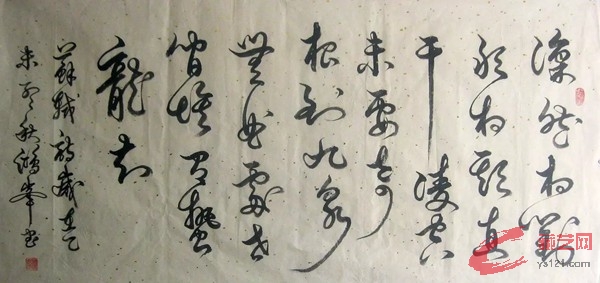 凜然相對
敢相欺直
干凌空
未要奇
根到九泉
無曲處世
間惟有蟄
龍知
蘇軾詩歲在乙
未秋鴻峰書
艺网
ys121.com